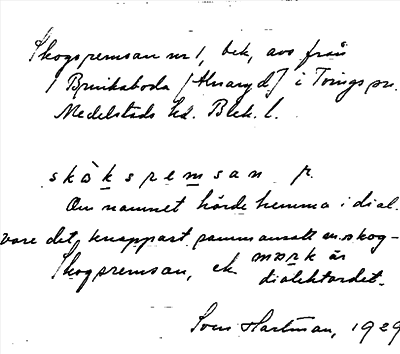 Skogsremsan nr 1, bek, avs från
1 Brinkaboda [Alnaryd] i Tvings sn.
Medelstads hd. Blek. l.
skòksremsan f.
Om namnet hörde hemma i dial.
vore det knappast sammansatt m. skog-
Skogsremsan, ek mork är
dialektordet.
Sven Hartman, 1929